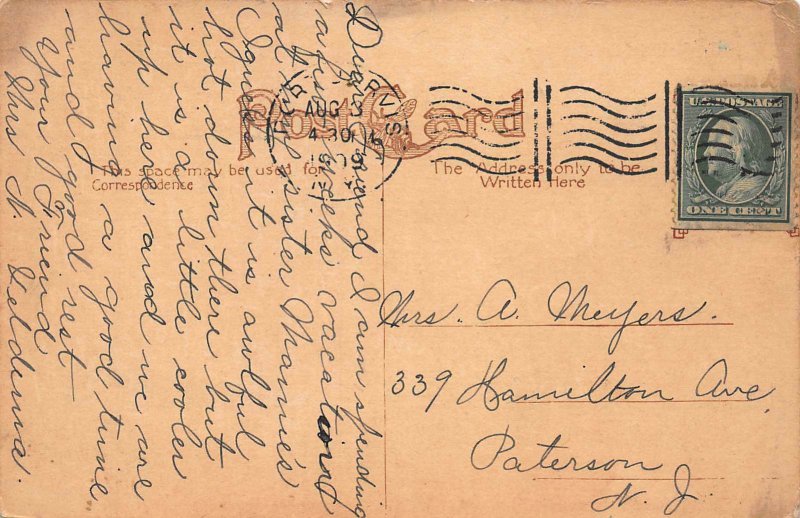 Post Card
This space may be used for
Correspondence
The Address only to be
Written Here
U.S. POSTAGE
ONE CENT
AUG
4 30
Dear Friend I am spending
a few weeks vacationn
at my sister Mamie's
I guess it is awful
hot down there but
it is a little cooler
up here and we are
having a good time
and good rest
Your Friend
Mrs N. Feldema.
Mrs. A. Meyers.
339 Hamilton Ave
Paterson
N. J.